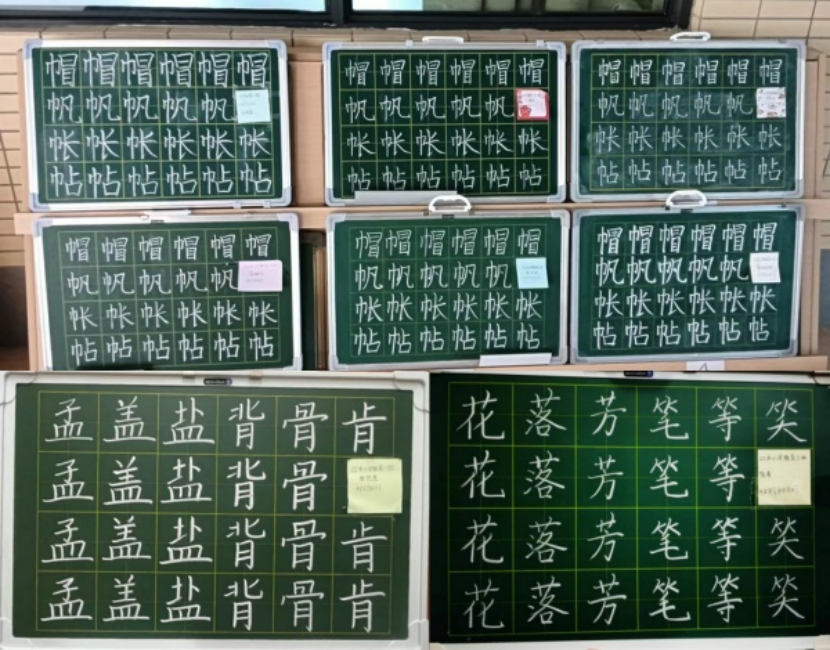 帽帽帽帽帽帽
帆帆帆帆帆
帐帐帐帐帐帐
帖帖帖帖帖帖
帽帽帽帽帽帽
帆帆帆帆帆
帐帐帐帐帐帐
帖帖帖帖帖帖
帽帽帽帽帽帽
帆帆帆帆帆
帐帐帐帐帐帐
帖帖帖帖帖帖
帽帽帽帽帽帽
帆帆帆帆帆
帐帐帐帐帐帐
帖帖帖帖帖帖
帽帽帽帽帽帽
帆帆帆帆帆
帐帐帐帐帐帐
帖帖帖帖帖帖
帽帽帽帽帽帽
帆帆帆帆帆
帐帐帐帐帐帐
帖帖帖帖帖帖
孟盖盐背骨肯
孟盖盐背骨
孟盖盐背骨肯
孟盖盐背骨肯
花落芳笔等笑
花落芳笔等
花落芳笔等笑
花落芳笔等笑